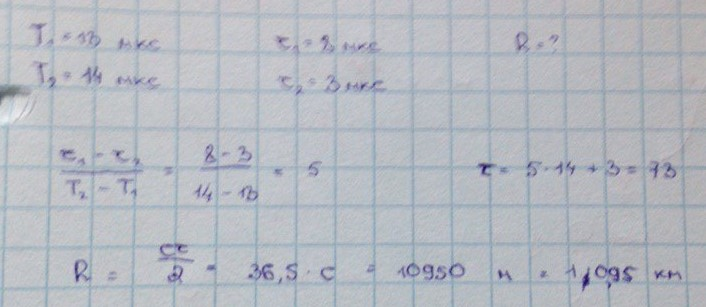 T₁ = 13 мкс τ₁ = 8 мкс R = ?
T₂ = 14 мкс τ₂ = 3 мкс
(τ₁ - τ₂)/(T₂ - T₁) = (8 - 3)/(14 - 13) = 5 τ = 5·14 + 3 = 73
R = cτ/2 = 36,5·c = 10950 м = 10,95 км